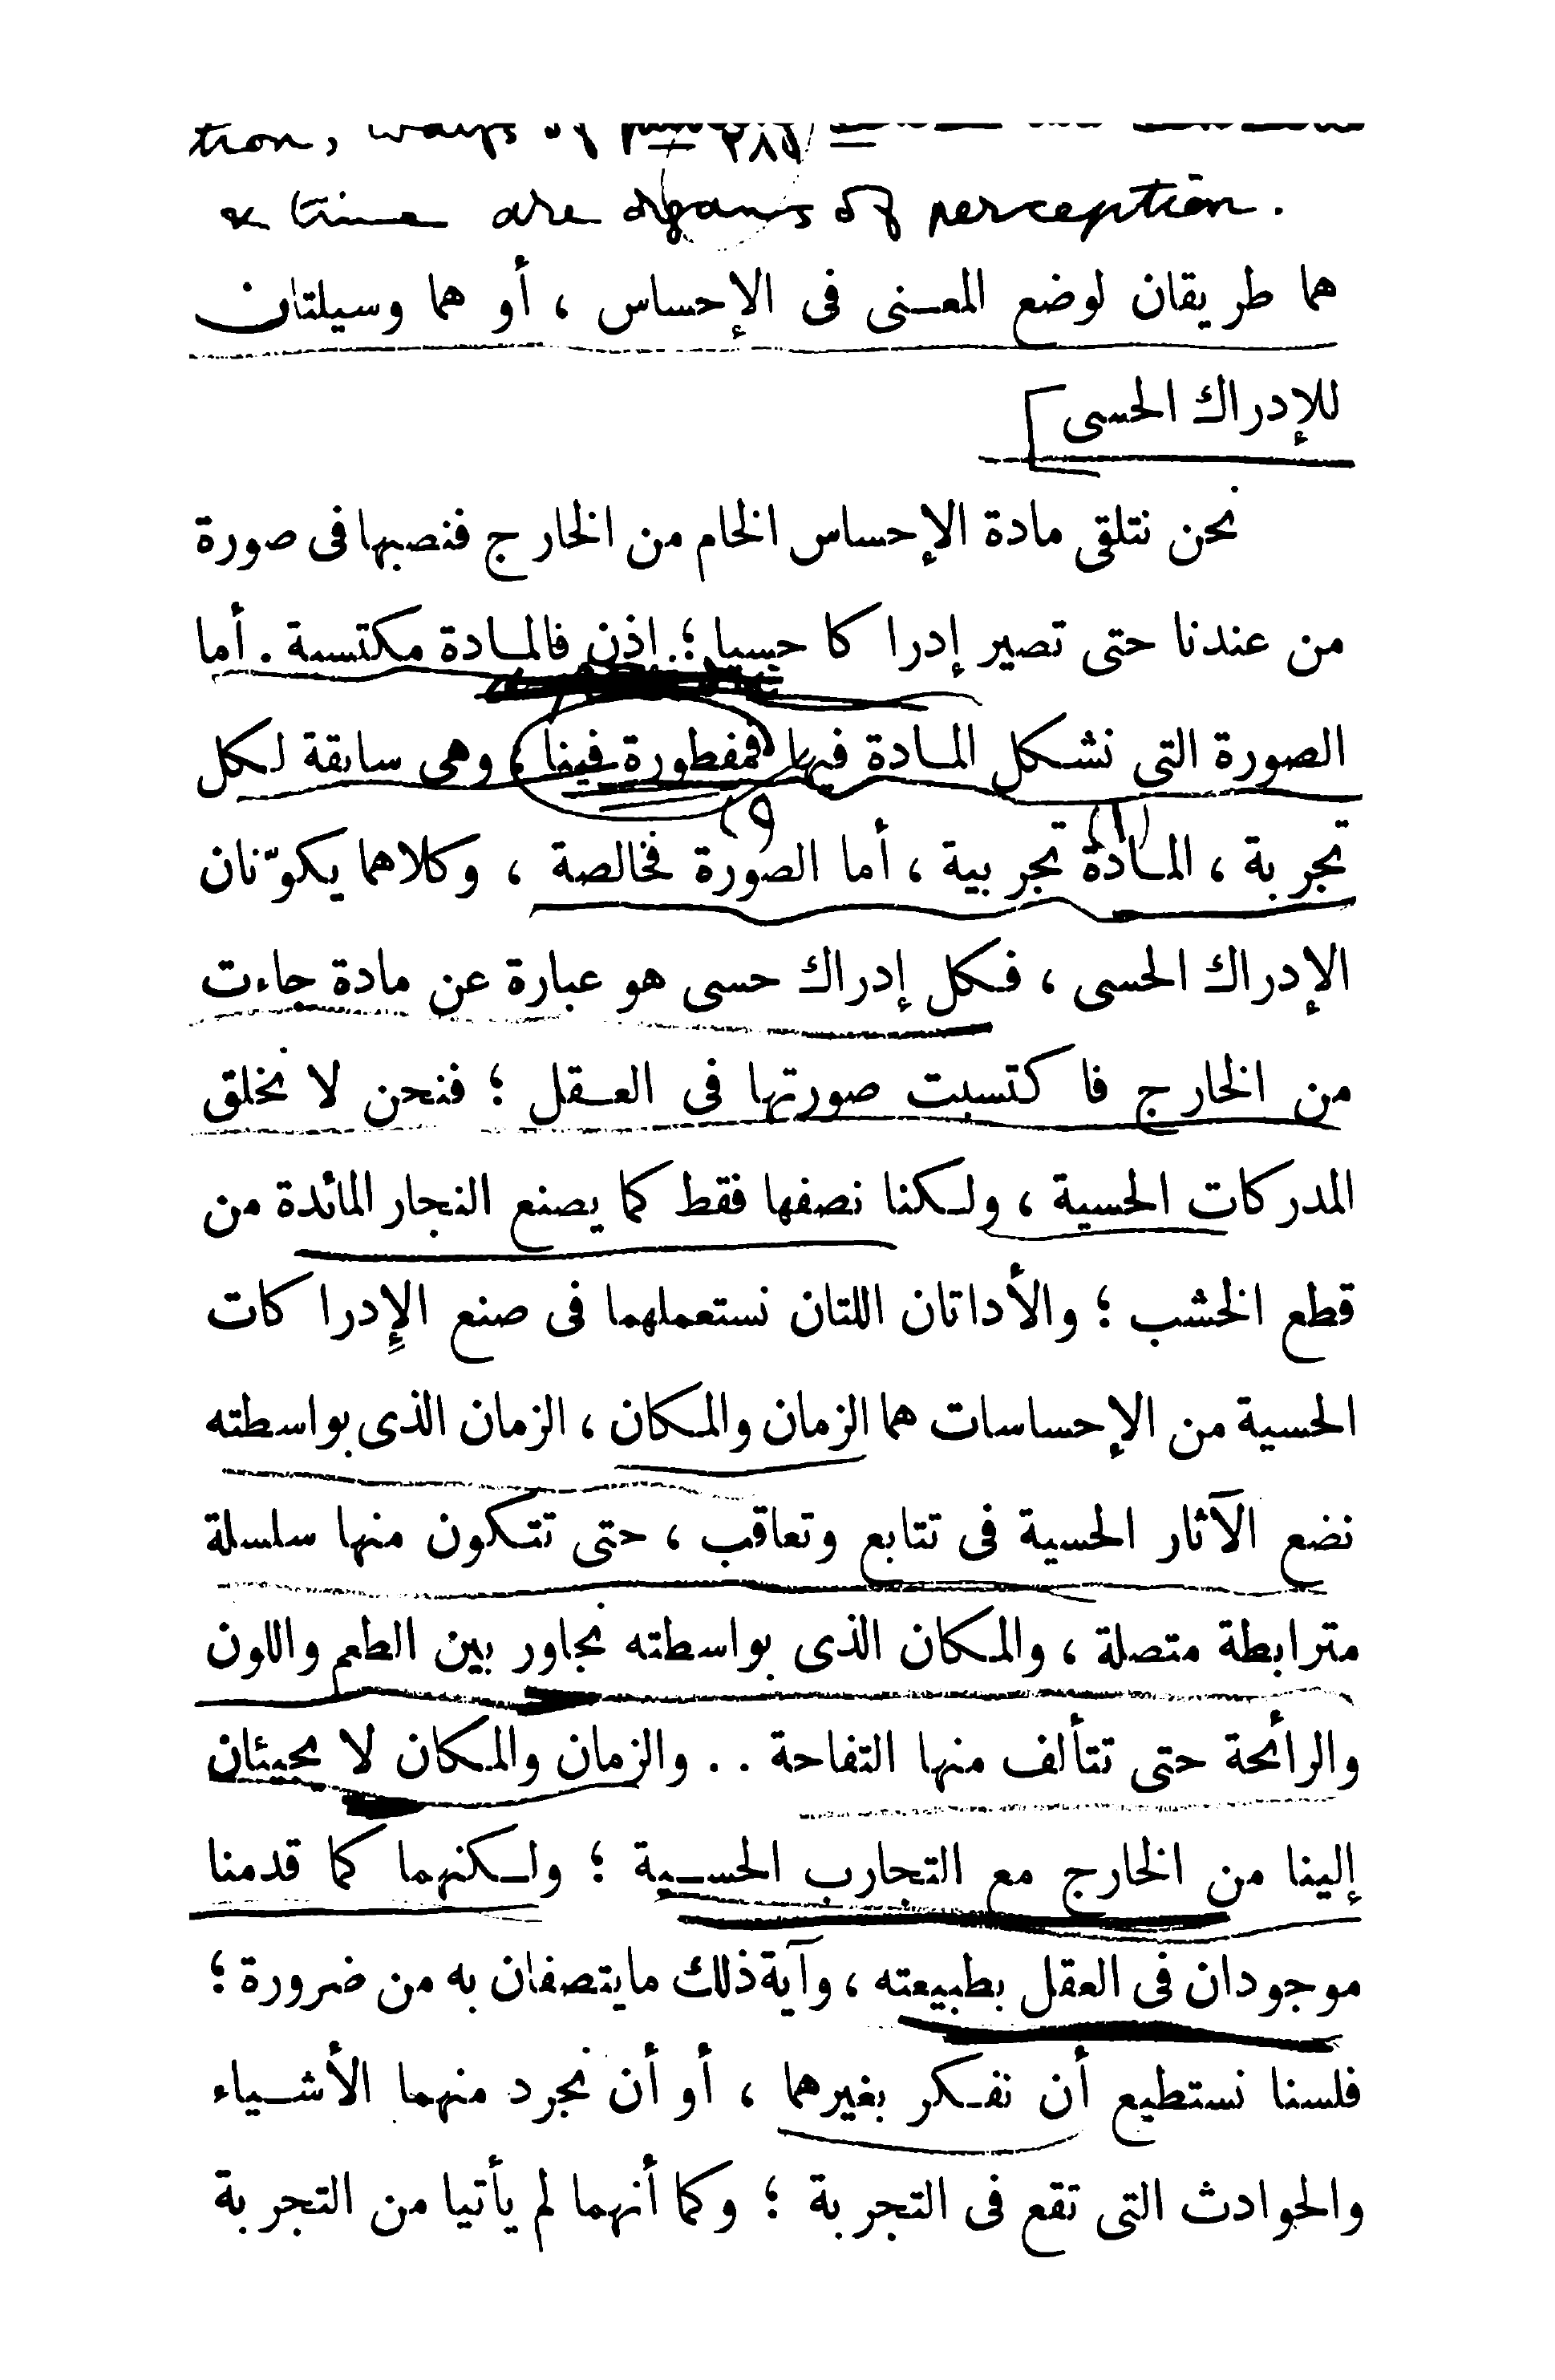 tion, ways of
— ٢٨٥ —
& time are organs of perception.
هما طريقان لوضع المعنى فى الإحساس ، أو هما وسيلتان
للإدراك الحسى
نحن نتلقى مادة الإحساس الخام من الخارج فنصبها فى صورة
من عندنا حتى تصير إدراكا حسيا ؛ إذن فالمادة مكتسبة . أما
الصورة التى نشكل المادة فيها فمفطورة فينا ، وهى سابقة لكل
تجربة ، المادة تجربية ، أما الصورة فخالصة ، وكلاهما يكوّنان
الإدراك الحسى ، فكل إدراك حسى هو عبارة عن مادة جاءت
من الخارج فاكتسبت صورتها فى العقل ؛ فنحن لا نخلق
المدركات الحسية ، ولكنا نصفها فقط كما يصنع النجار المائدة من
قطع الخشب ؛ والأداتان اللتان نستعملهما فى صنع الإدراكات
الحسية من الإحساسات هما الزمان والمكان ، الزمان الذى بواسطته
نضع الآثار الحسية فى تتابع وتعاقب ، حتى تتكون منها سلسلة
مترابطة متصلة ، والمكان الذى بواسطته نجاور بين الطعم واللون
والرائحة حتى تتألف منها التفاحة . . والزمان والمكان لا يجيئان
إلينا من الخارج مع التجارب الحسية ؛ ولكنهما كما قدمنا
موجودان فى العقل بطبيعته ، وآية ذلك ما يتصفان به من ضرورة ؛
فلسنا نستطيع أن نفكر بغيرهما ، أو أن نجرد منهما الأشياء
والحوادث التى تقع فى التجربة ؛ وكما أنهما لم يأتيا من التجربة